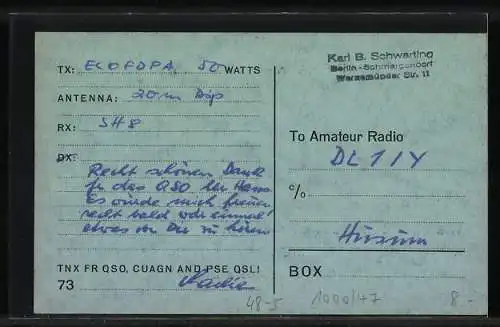 TX: ECO FD PA 50 WATTS
ANTENNA: 20m Dip
RX: SH8
DX:
Recht schönen Dank
fr das QSO lbr Hans
Es würde mich freuen
recht bald wdr einmal
etwas von Dir zu hören
TNX FR QSO, CUAGN AND PSE QSL!
73
Karl B. Schwarting
Berlin-Schmargendorf
Warnemünder Str. 11
To Amateur Radio
DL1IY
c/o
Husum
BOX
48-5
1000/47
8.-